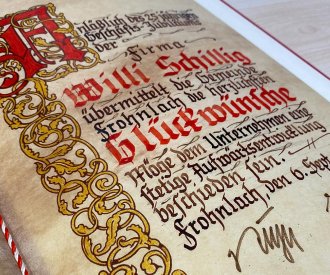 Anläßlich des 25jährigen
Geschäftsjubiläums
der
Firma
Willi Schillig
übermittelt die Gemeinde
Frohnlach die herzlichsten
Glückwünsche
Möge dem Unternehmen eine
stetige Aufwärtsentwicklung
beschieden sein.
Frohnlach, den 6. Sep